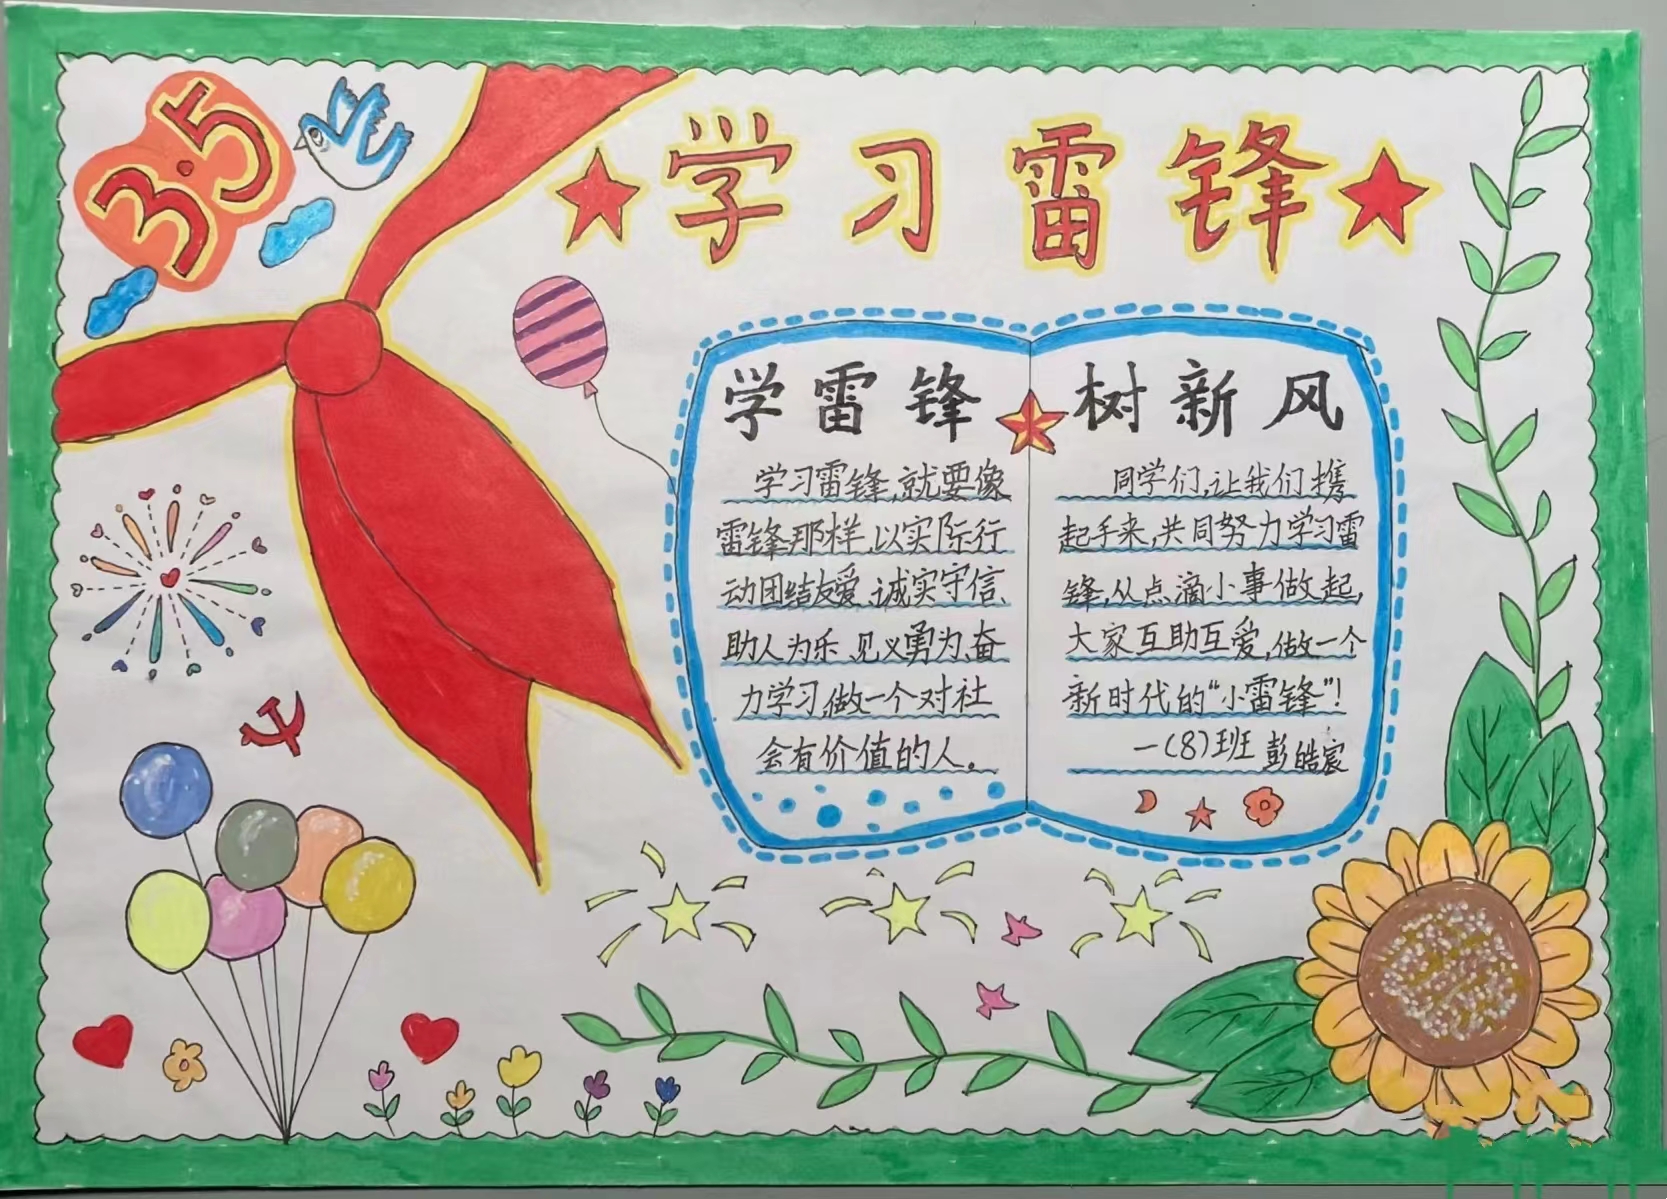 3·5
学习雷锋
学雷锋
学习雷锋,就要像
雷锋那样,以实际行
动团结友爱、诚实守信、
助人为乐、见义勇为、奋
力学习,做一个对社
会有价值的人。
树新风
同学们,让我们携
起手来,共同努力学习雷
锋,从点滴小事做起,
大家互助互爱,做一个
新时代的“小雷锋”!
一(8)班 彭皓宸